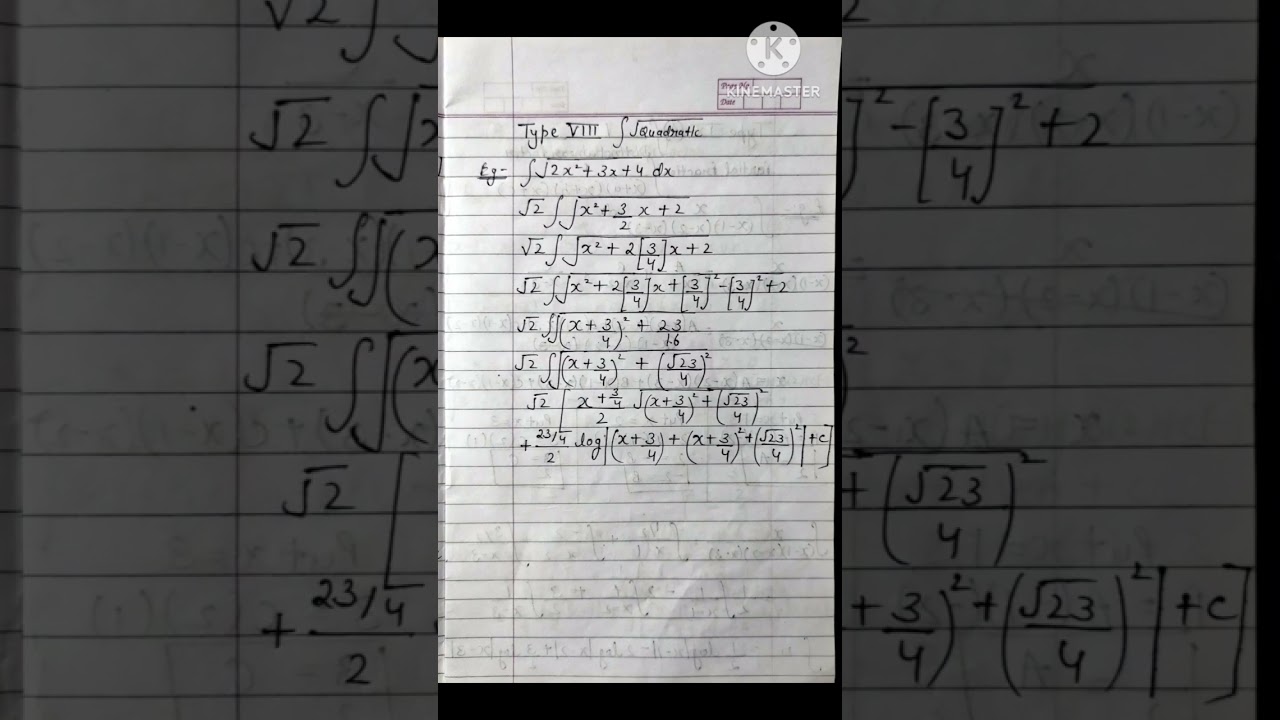 KINEMASTER
Page No.
Date
Type VIII ∫√Quadratic
Eg- ∫√2x²+3x+4 dx
√2 ∫√x²+3/2 x+2
√2 ∫√x²+2[3/4]x+2
√2 ∫√x²+2[3/4]x+[3/4]²-[3/4]²+2
√2 ∫√(x+3/4)²+23/16
√2 ∫√(x+3/4)²+(√23/4)²
√2 [x+3/4/2 √(x+3/4)²+(√23/4)²
+23/4/2 log|(x+3/4)+(x+3/4)²+(√23/4)²|+c]